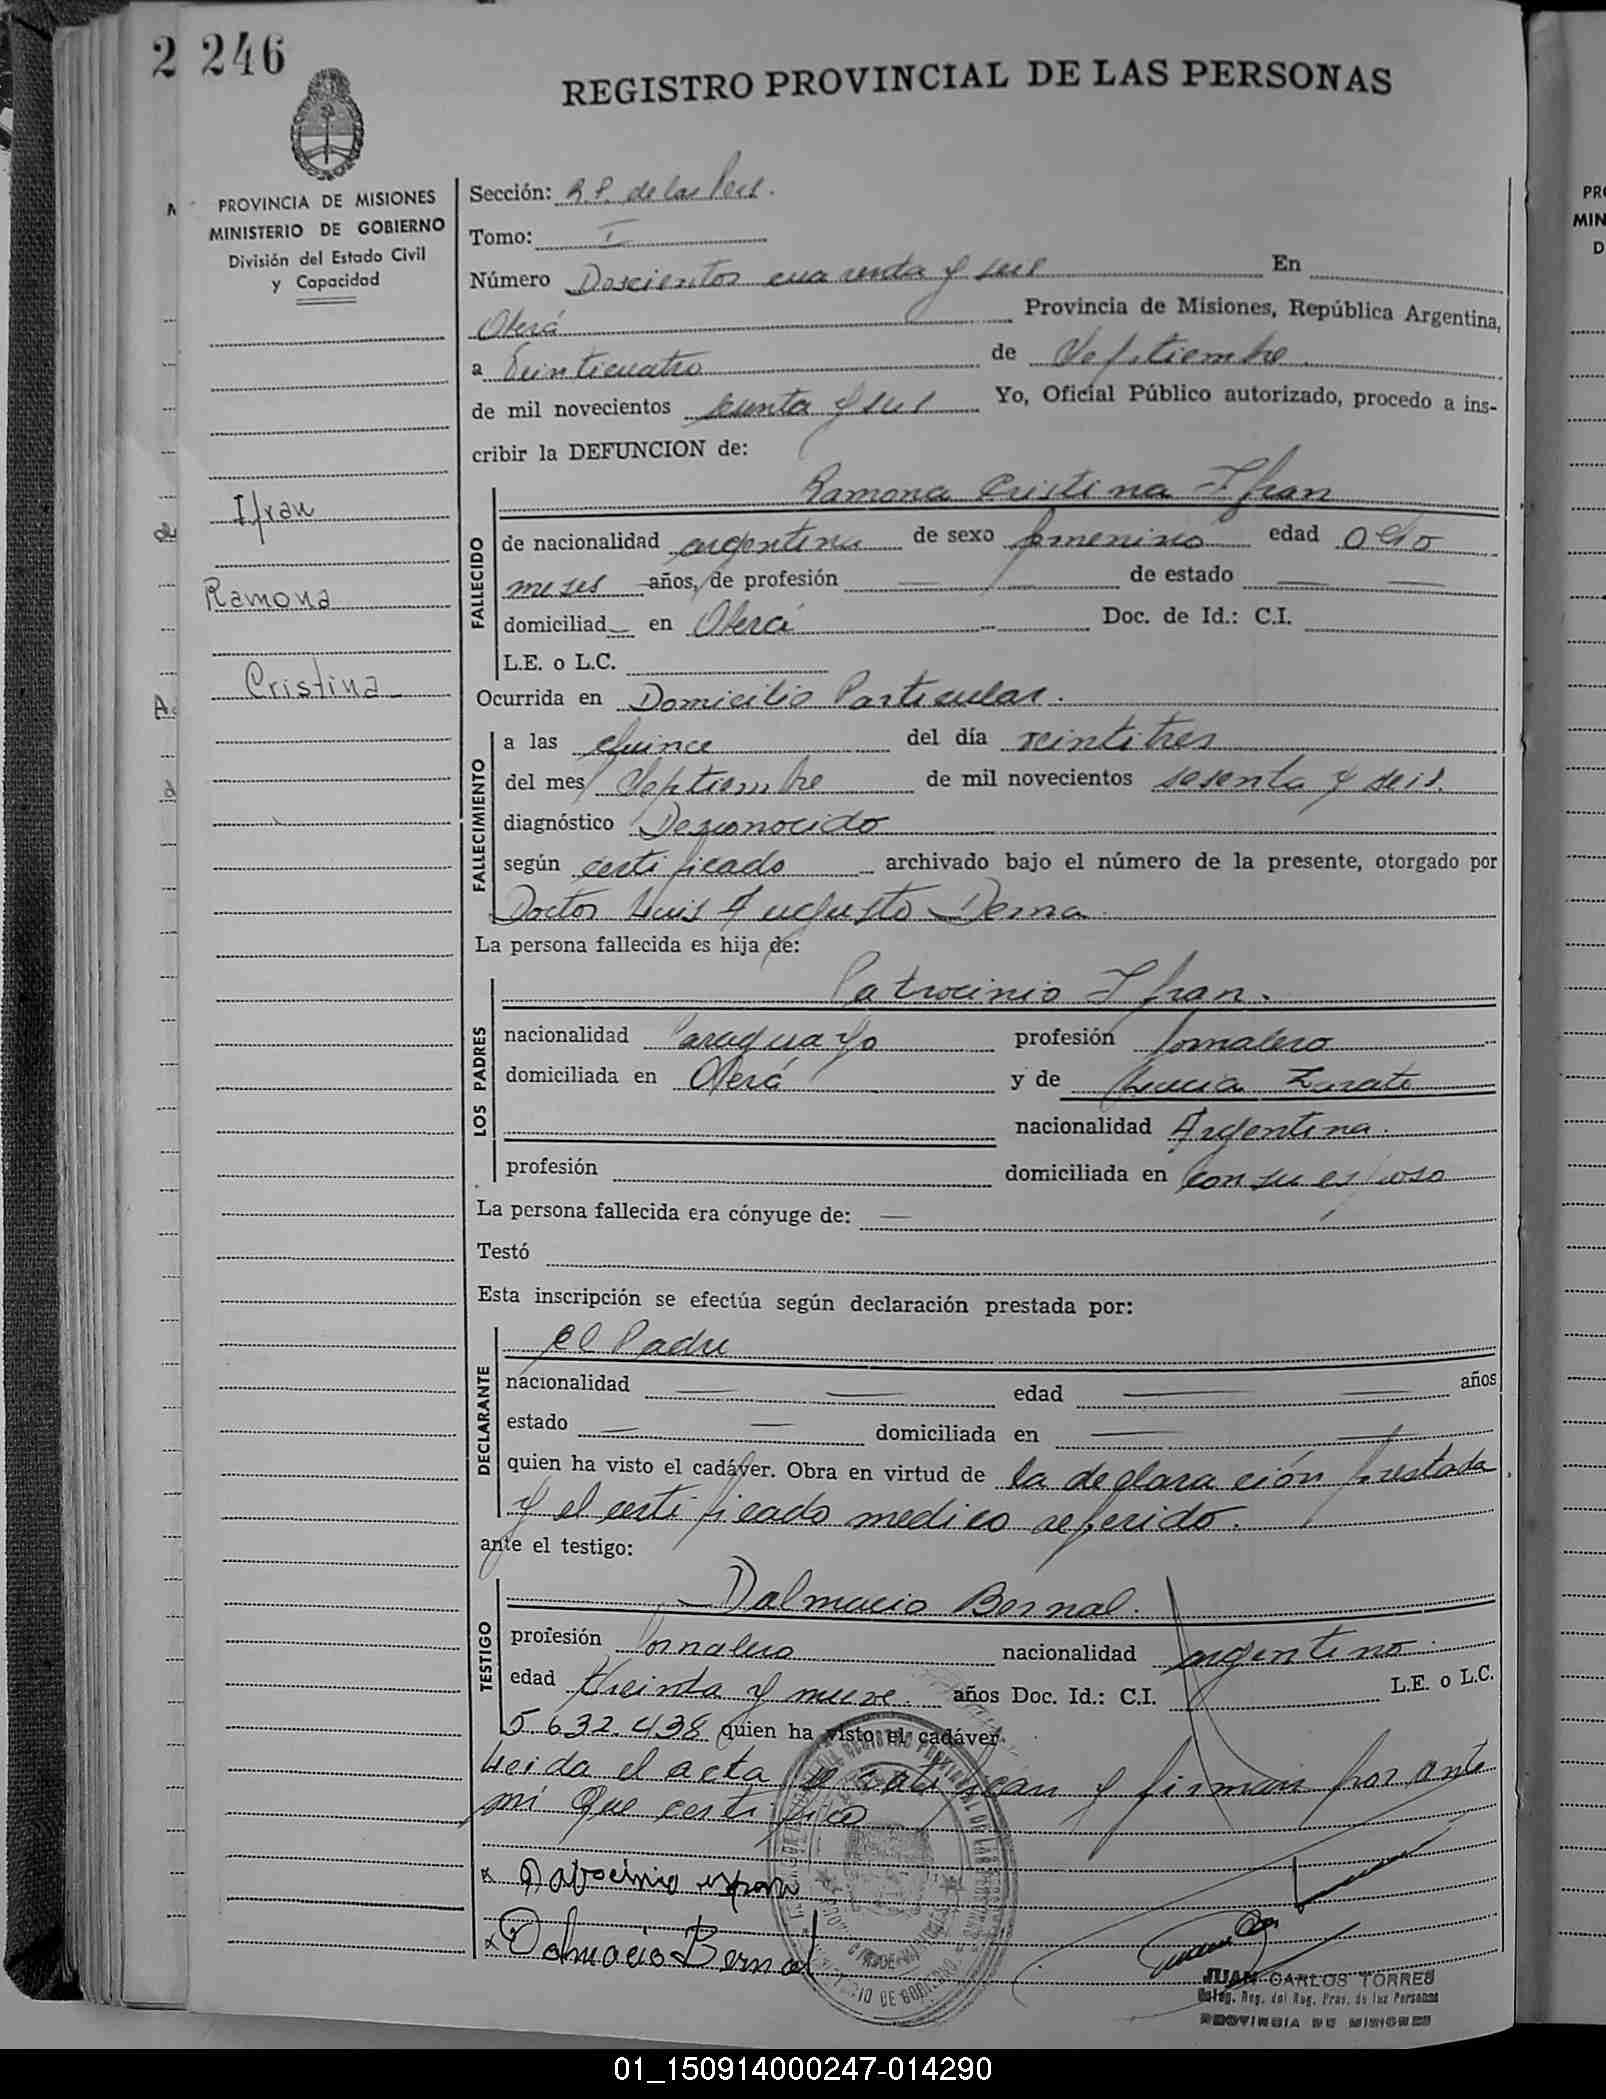 2 246
REGISTRO PROVINCIAL DE LAS PERSONAS
PROVINCIA DE MISIONES
MINISTERIO DE GOBIERNO
División del Estado Civil
y Capacidad
Ifran
Ramona
Cristina
Sección: R.P. de las Pers.
Tomo: I
Número Doscientos cuarenta y seis En
Oberá Provincia de Misiones, República Argentina,
a Veinticuatro de Septiembre
de mil novecientos sesenta y seis Yo, Oficial Público autorizado, procedo a ins-
cribir la DEFUNCION de:
FALLECIDO
Ramona Cristina Ifran
de nacionalidad argentina de sexo femenino edad ocho
meses años, de profesión — de estado — —
domiciliad en Oberá Doc. de Id.: C.I.
L.E. o L.C.
Ocurrida en Domicilio Particular.
FALLECIMIENTO
a las quince del día veintitres
del mes Septiembre de mil novecientos sesenta y seis.
diagnóstico Desconocido
según certificado archivado bajo el número de la presente, otorgado por
Doctor Luis Augusto Derna
La persona fallecida es hija de:
LOS PADRES
Patrocinio Ifran.
nacionalidad Paraguayo profesión Jornalero
domiciliada en Oberá y de Lucia Zarate
nacionalidad Argentina.
profesión domiciliada en con su esposo
La persona fallecida era cónyuge de: —
Testó
Esta inscripción se efectúa según declaración prestada por:
DECLARANTE
el Padre
nacionalidad — — edad — — años
estado — — domiciliada en — —
quien ha visto el cadáver. Obra en virtud de la declaración prestada
y el certificado medico referido.
ante el testigo:
TESTIGO
Dalmacio Bernal.
profesión Jornalero nacionalidad argentino.
edad treinta y nueve años Doc. Id.: C.I. L.E. o L.C.
5.632.438 quien ha visto el cadáver.
Leida el acta se ratifican y firman por ante
mí que certifico
x Patrocinio
x Dalmacio Bernal
JUAN CARLOS TORRES
Reg. del Reg. Prov. de las Personas
PROVINCIA DE MISIONES
PRO
MIN
D
01_150914000247-014290